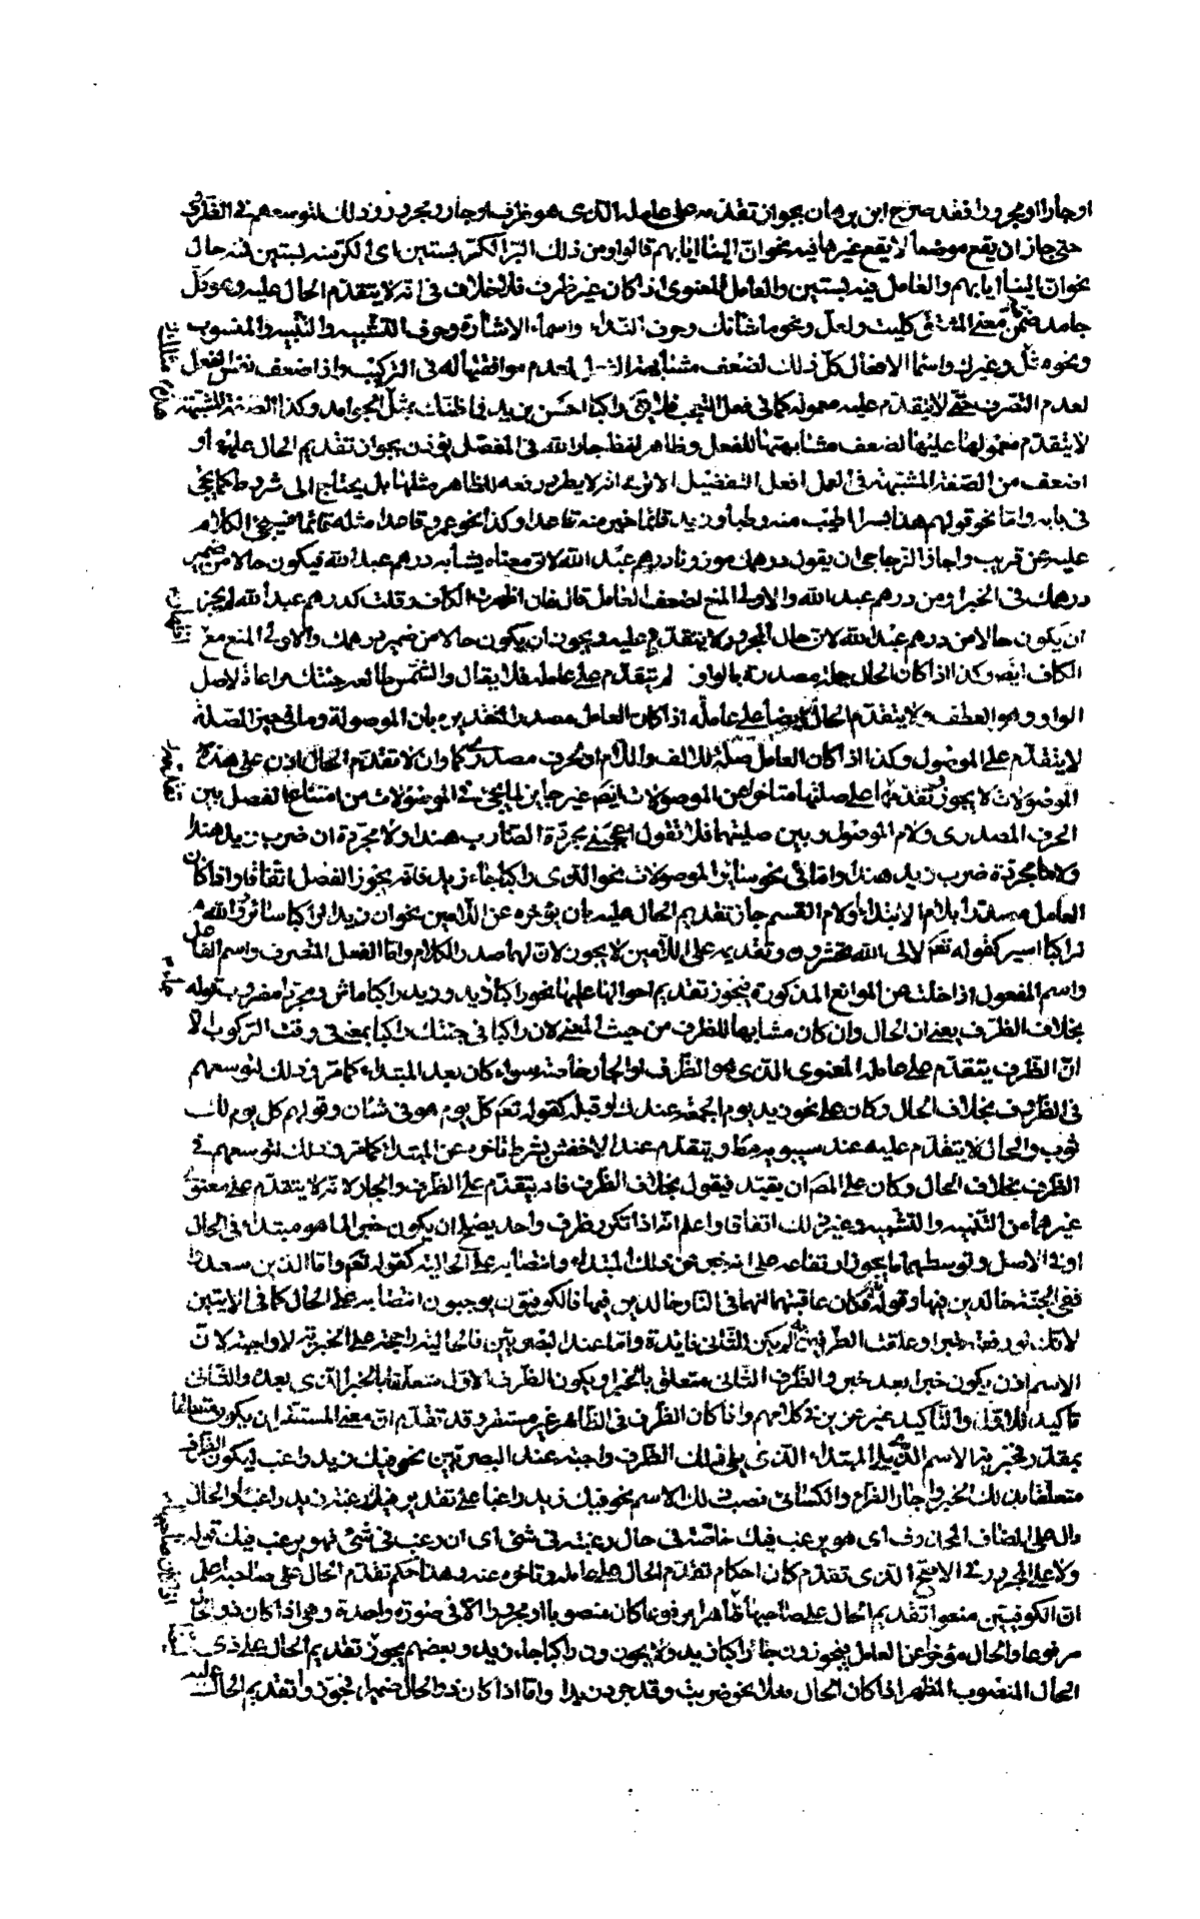 او جارا او مجرورا فقد صرح ابن برهان بجواز تقدمه على عامله الذى هو ظرف او جار ومجرور وذلك لتوسعهم فى الظروف
حتى جاز ان يقع موضعا لا يقع غيرها فيه نحو ان الينا ايابهم قالوا ومن ذلك البر الكر بستين اى الكر منه بستين فمنه حال
نحو ان الينا ايابهم والعامل فيه بستين والعامل المعنوى اذا كان غير ظرف فلا خلاف فى انه لا يتقدم الحال عليه وهو كل
جامد ضمن معنى المشتق كليت ولعل ونحو ما شأنك وحرف النداء واسماء الاشارة وحرف التشبيه والتنبيه والمنسوب
ونحوه مثل وغيرك واسما الافعال كل ذلك لضعف مشابهة الفعل لعدم موافقتها له فى التركيب واذا ضعف نفس الفعل
لعدم التصرف حتى لا يتقدم عليه معموله كما فى فعل التعجب فلا راكبا احسن بزيد فما ظنك بمثل الجوامد وكذا الصفة المشبهة
لا يتقدم معمولها عليها لضعف مشابهتها للفعل وظاهر لفظ جار الله فى المفصل يؤذن بجواز تقديم الحال عليها و
اضعف من الصفة المشبهة فى العمل افعل التفضيل الا ترى انه لا يطرد رفعه للظاهر مثلها بل يحتاج الى شروط كما يجئ
فى بابه واما نحو قولهم هذا بسرا اطيب منه رطبا وزيد قائما خير منه قاعدا وكذا نحو عمرو قاعدا مثله قائما فسيجئ الكلام
عليه عن قريب واجاز الزجاجى ان يقول درهمك موزونا درهم عبد الله لان معناه يشابه درهم عبد الله فيكون حالا من ضمير
درهمك فى الخبر او من درهم عبد الله والاولى المنع لضعف العامل قال فان اظهرت الكاف وقلت كدرهم عبد الله لم يجز
ان يكون حالا من درهم عبد الله لان حال المجرور لا يتقدم عليه ويجوز ان يكون حالا من ضمير درهمك والاولى المنع مع
الكاف ايضا وكذا اذا كان الحال جملة مصدرة بالواو لم يتقدم على عامله فلا يقال والشمس طالعة جئتك مراعاة لاصل
الواو وهو العطف ولا يتقدم الحال ايضا على عامله اذا كان العامل مصدرا لتقديره بان الموصولة وما فى حيز الصلة
لا يتقدم على الموصول وكذا اذا كان العامل صلة للالف واللام او لحرف مصدرى كما وان لا تقدم الحال اذن على هذه
الموصولات لا يجوز تقدمها على صلتها متاخرا عن الموصولات ايضا غير جايز لما يجئ فى الموصولات من امتناع الفصل بين
الحرف المصدرى ولام الموصول وبين صلتهما فلا تقول اعجبنى مجردة الضارب هندا ولا مجردة ان ضرب زيد هندا
ولا ما مجردة ضرب زيد هندا واما فى نحو سائر الموصولات نحو الذى راكبا جاء زيد فانه يجوز الفصل اتفاقا واذا كان
العامل مصدرا بلام الابتداء ولام القسم جاز تقديم الحال عليه بان يؤخره عن اللامين نحو ان زيدا لراكبا سائر و الله
لراكبا اسير كقوله تعم لالى الله تحشرون وتقديمه على اللامين لا يجوز لان لهما صدر الكلام واما الفعل المتصرف واسم الفاعل
واسم المفعول اذا خلت من الموانع المذكورة فيجوز تقديم احوالها عليها نحو راكبا زيد وزيد راكبا ماش ومجردا مضروب قوله
بخلاف الظرف يعنى ان الحال وان كان مشابها للظرف من حيث المعنى لان راكبا فى جئتك راكبا بمعنى فى وقت الركوب الا
ان الظرف يتقدم على عامله المعنوى الذى هو الظرف او الجار خاصة سواء كان بعد المبتداء كما مر فى ذلك لتوسعهم
فى الظروف بخلاف الحال وكان على نحو زيد يوم الجمعة عندك او قبله كقوله تعم كل يوم هو فى شان وقولهم كل يوم لك
ثوب والحال لا يتقدم عليه عند سيبويه مطلقا ويتقدم عند الاخفش بشرط تاخره عن المبتدا كما مر وذلك لتوسعهم فى
الظرف بخلاف الحال وكان على المصـ ان يقيد فيقول بخلاف الظرف فانه يتقدم على الظرف والجار لانه لا يتقدم على معنوى
غيرهما من التنبيه والتشبيه وغير ذلك اتفاقا واعلم انه اذا تكرر ظرف واحد يصلح ان يكون خبرا لما هو مبتداء فى الحال
او فى الاصل وتوسطهما ما يجوز ارتفاعه على انه خبر عن ذلك المبتداء وانتصابه على الحالية كقوله تعم واما الذين سعدوا
ففى الجنة خالدين فيها وقوله فكان عاقبتهما انهما فى النار خالدين فيها فالكوفيون يوجبون انتصابه على الحال كما فى الايتين
لانك لو رفعته خبرا وعلقت الظرفين به لم يكن للثانى فائدة واما عند البصريين فالحالية راجحة على الخبرية لا واجبة لان
الاسم اذن يكون خبرا بعد خبر والظرف الثانى متعلق بالخبر او يكون الظرف الاول متعلقا بالخبر الذى بعده والثانى
تاكيد للاول والتاكيد غير عزيز فى كلامهم واذا كان الظرف فى الظاهر غير مستقر وقد تقدم ان معنى المستقر ان يكون متعلقا
بمقدر فخبرية الاسم الذى يلى المبتداء الذى يلى ذلك الظرف واجبة عند البصريين نحو فيك زيد راغب ليكون الظرف
متعلقا بذلك الخبر واجاز الفراء والكسائى نصب ذلك الاسم نحو فيك زيد راغبا على تقدير فيك رغبة زيد راغبا والحال
دال على المضاف المحذوف اى هو يرغب فيك خاصة فى حال رغبته فى شئ اى ان رغب فى شئ فهو يرغب فيك قوله
ولا على المجرور فى الاصح الذى تقدم كان احكام تقدم الحال على عامله وتاخره عنه وهذا حكم تقدم الحال على صاحبه اعلم
ان الكوفيين منعوا تقديم الحال على صاحبها ظاهرا مرفوعا كان او منصوبا او مجرورا الا فى صورة واحدة وهى اذا كان ذو الحال
مرفوعا والحال مؤخرا عن العامل فيجوزون جاء راكبا زيد ولا يجوزون راكبا جاء زيد وبعضهم يجوز تقديم الحال على ذى
الحال المنصوب المظهر اذا كان الحال فعلا نحو ضربت وقد جرد زيدا واما اذا كان ذو الحال ضميرا فجوزوا تقديم الحال عليه